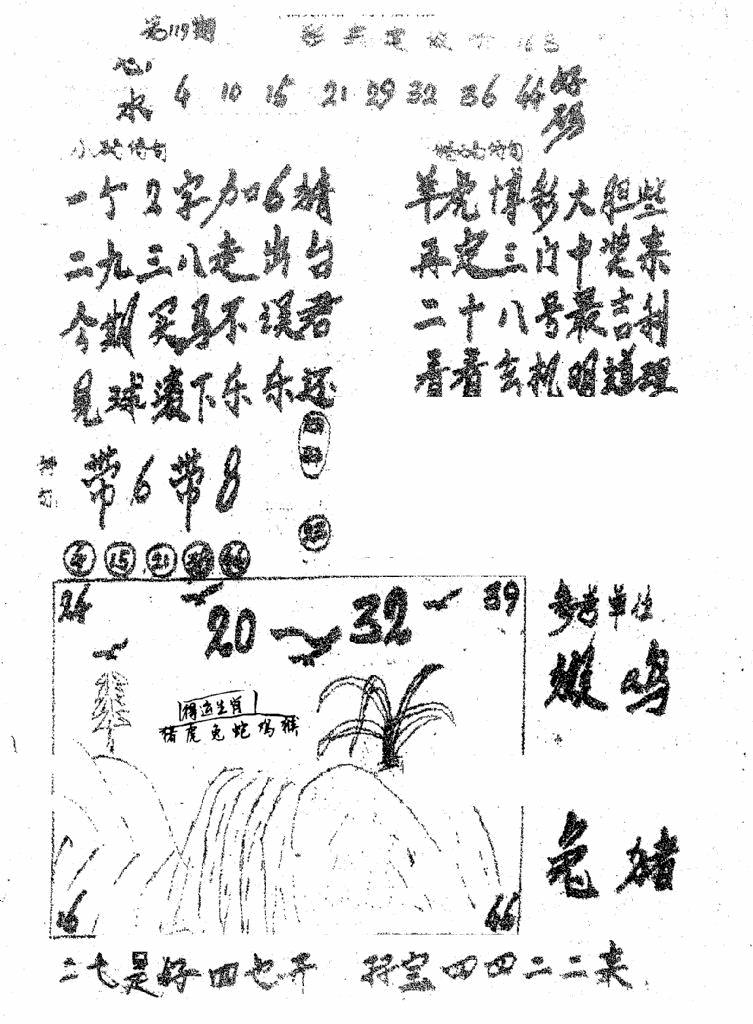 第119期
心水 4 10 15 21 29 32 36 44 好码
一个2字加6猜
二九三八走出台
今期买马不误君
见球滚下乐乐还
羊虎博彩大胆些
再定三门中奖来
二十八号最吉利
看看玄机明道理
带6带8
4 15 21 36 44
24 20 32 39
得运生肖
猪虎兔蛇鸡猴
参考单位
猴鸡
兔猪
16
二七是好四七开 四四二二来